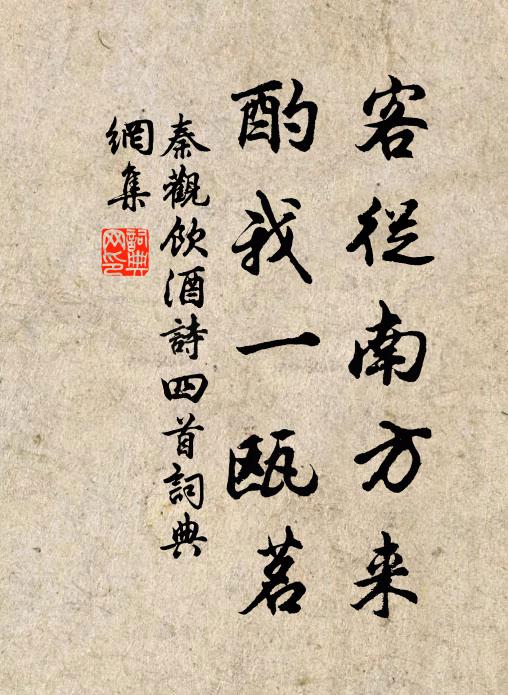 客從南方来
酌我一甌茗
秦觀飲酒詩四首詞典
網集
詞典
网印